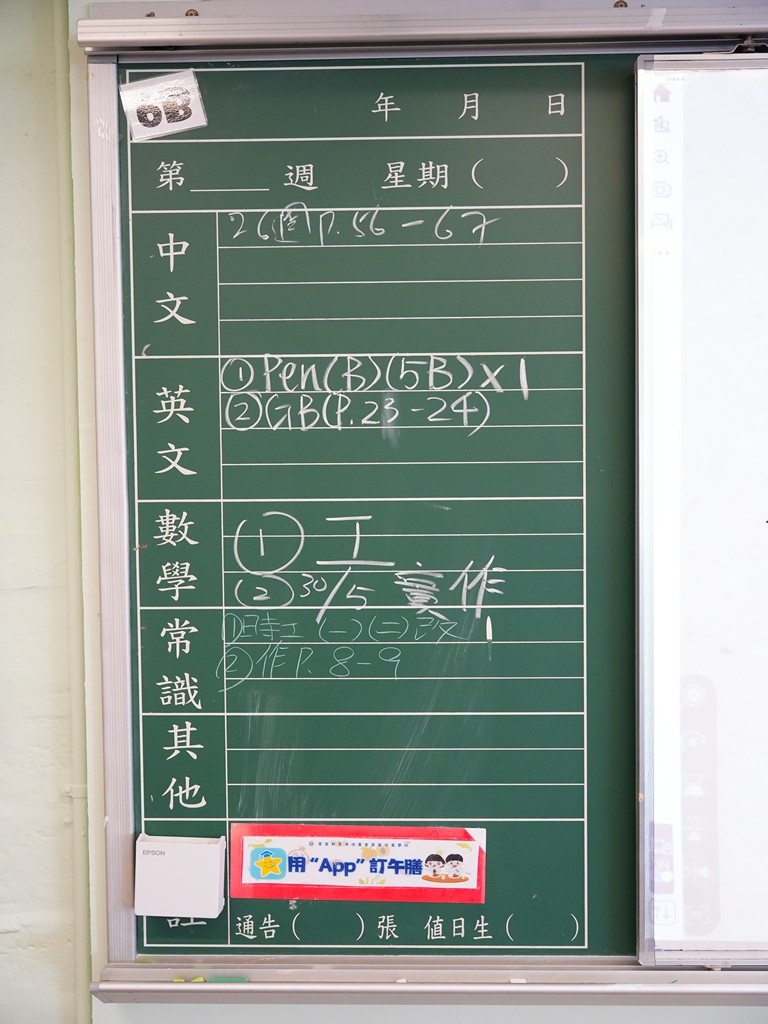 6B
年 月 日
第____週 星期( )
中文
26 P.56-67
英文
①Pen(B)(5B)x1
②GB(P.23-24)
數學
① 工
② 30/5 作
常識
① (一)(二)改
②作P.8-9
其他
EPSON
用“App”訂午膳
通告( )張 值日生( )